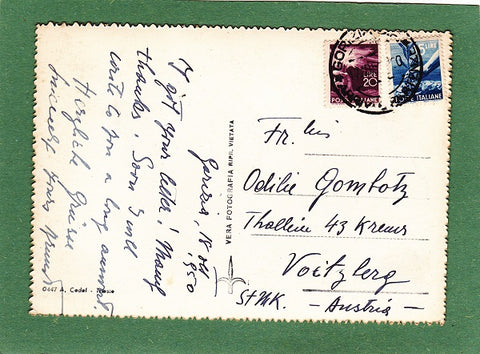 Gorizia, 18 okt
1950
I got your letter! Many
thanks! Soon I will
write to you a long answer.
Herzliche Grüsse
sincerely yours
VERA FOTOGRAFIA RIPR. VIETATA
0447 A. Cedel -
LIRE
20
POSTE ITALIANE
15 LIRE
POSTE ITALIANE
Frl.
Odilie Gombotz
43
Voitzberg
STMK. - Austria -